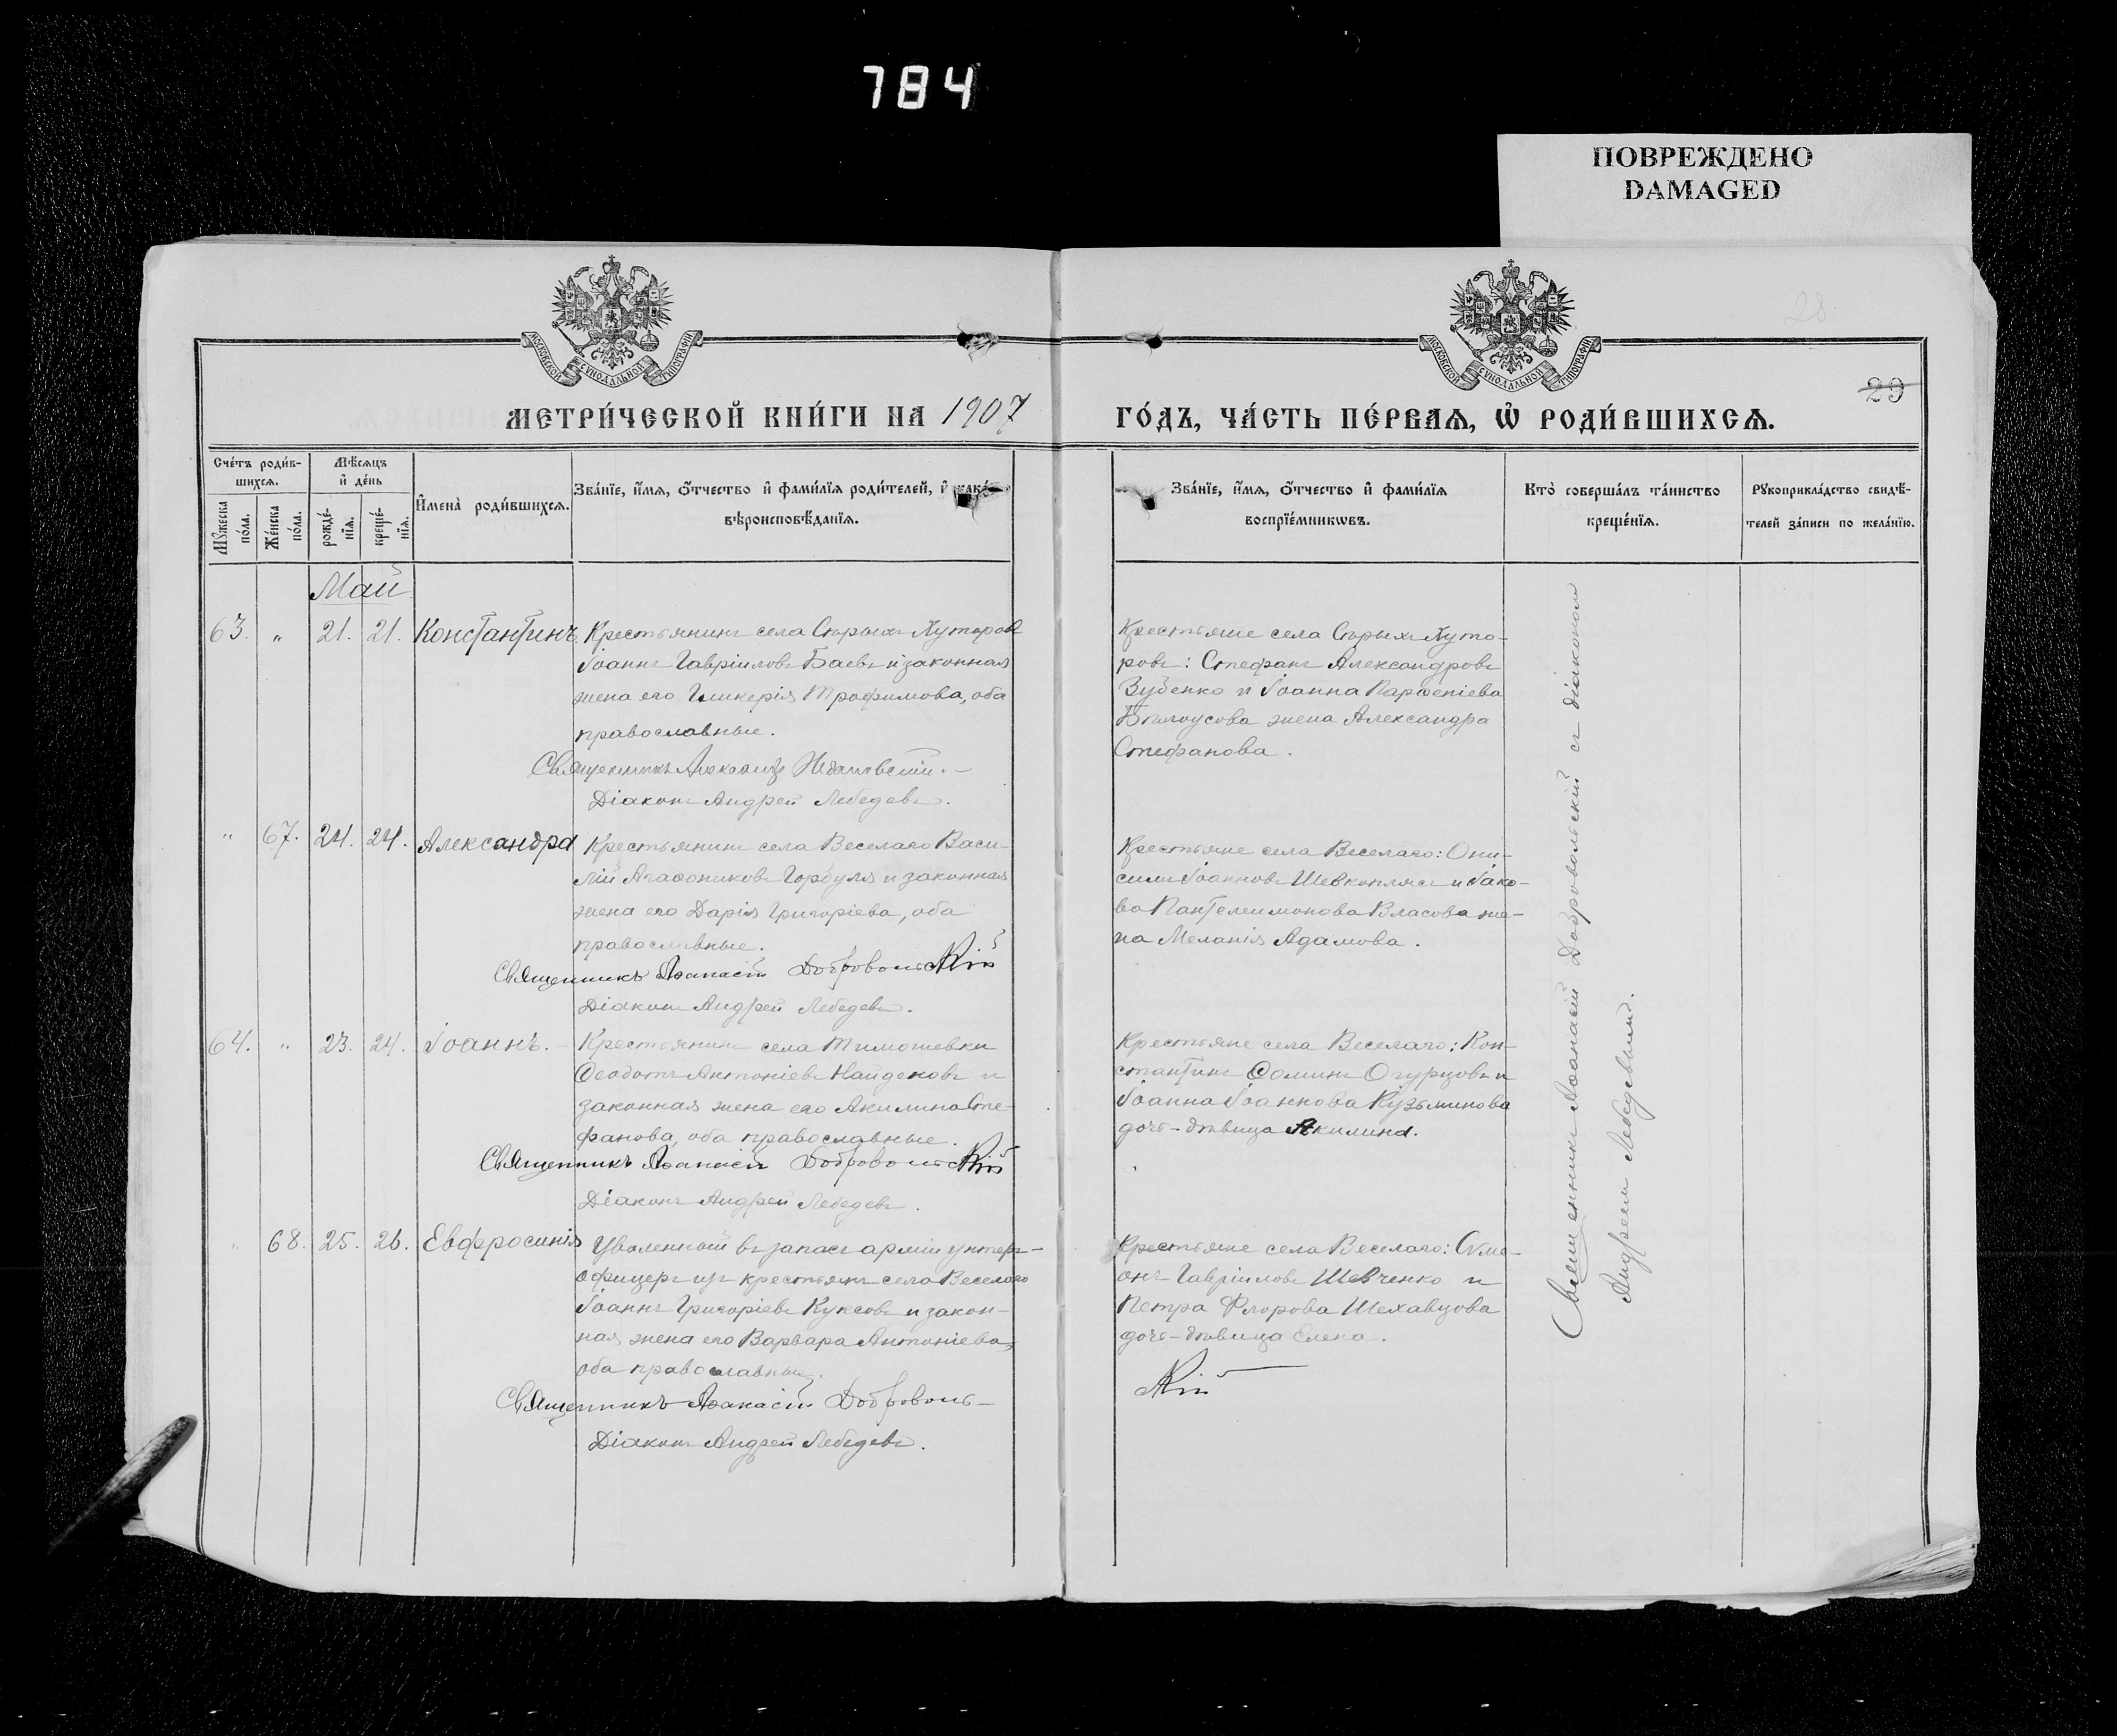 784
ПОВРЕЖДЕНО
DAMAGED
28.
29
МОСКОВСКОЙ СѴНОДАЛЬНОЙ ТИПОГРАФІИ
МОСКОВСКОЙ СѴНОДАЛЬНОЙ ТИПОГРАФІИ
МЕТРИ́ЧЕСКОЙ КНИ́ГИ НА 1907
ГО́ДЪ, ЧА́СТЬ ПЕ́РВАЯ, Ѡ҆ РОДИ́ВШИХСЯ.
Сче́тъ роди́в-
шихсѧ.
Мꙋ́жеска по́ла.
Же́нска по́ла.
Мѣ́сѧцъ
и҆ де́нь
рожде́-
нїѧ.
креще́-
нїѧ.
И҆мена̀ роди́вшихсѧ.
Зва́нїе, и҆́мѧ, ѻ҆́тчество и҆ фами́лїѧ роди́телей, и҆ како́-
вѣроисповѣ́данїѧ.
Зва́нїе, и҆́мѧ, ѻ҆́тчество и҆ фами́лїѧ
воспрїе́мникѡвъ.
Кто̀ соверша́лъ та́инство
креще́нїѧ.
Рꙋкоприкла́дство свидѣ́-
телей за́писи по жела́нїю.
Май
63. „ 21. 21. Константинъ
Крестьянинъ села Сѣрыхъ Хуторовъ
Іоаннъ Гавріиловъ Баевъ и законная
жена его Гликерія Трофимова, оба
православные.
Священникъ Александръ
Діаконъ Андрей Лебедевъ.
Крестьяне села Сѣрыхъ Хуто-
ровъ: Стефанъ Александровъ
Зубенко и Іоанна Парѳеніева
Бѣлоусова жена Александра
Стефанова.
„ 67. 24. 24. Александра
Крестьянинъ села Веселаго Васи-
лій Агаѳониковъ Горбуля и законная
жена его Дарія Григоріева, оба
православные.
Священникъ Аѳанасій Добровольскій
Діаконъ Андрей Лебедевъ.
Крестьяне села Веселаго: Они-
симъ Іоанновъ Шевкоплясъ и Іако-
ва Пантелеимонова Власова же-
на Меланія Адамова.
64. „ 23. 24. Іоаннъ.
Крестьянинъ села Тимошевки
Ѳеодотъ Антоніевъ Найденовъ и
законная жена его Акилина Сте-
фанова, оба православные.
Священникъ Аѳанасій Добровольскій
Діаконъ Андрей Лебедевъ.
Крестьяне села Веселаго: Кон-
стантинъ Ѳоминъ Огурцовъ и
Іоанна Іоаннова Кузьминова
дочь-дѣвица Акилина.
„ 68. 25. 26. Евфросинія
Уволенный въ запасъ арміи унтеръ-
офицеръ изъ крестьянъ села Веселаго
Іоаннъ Григоріевъ Куксовъ и закон-
ная жена его Варвара Антоніева,
оба православные.
Священникъ Аѳанасій Доброволь-
скій
Діаконъ Андрей Лебедевъ.
Крестьяне села Веселаго: Сѵме-
онъ Гавріиловъ Шевченко и
Петра Флорова Шехавцова
дочь-дѣвица Елена.
Священникъ Аѳанасій Добровольскій съ діакономъ
Андреемъ Лебедевымъ.